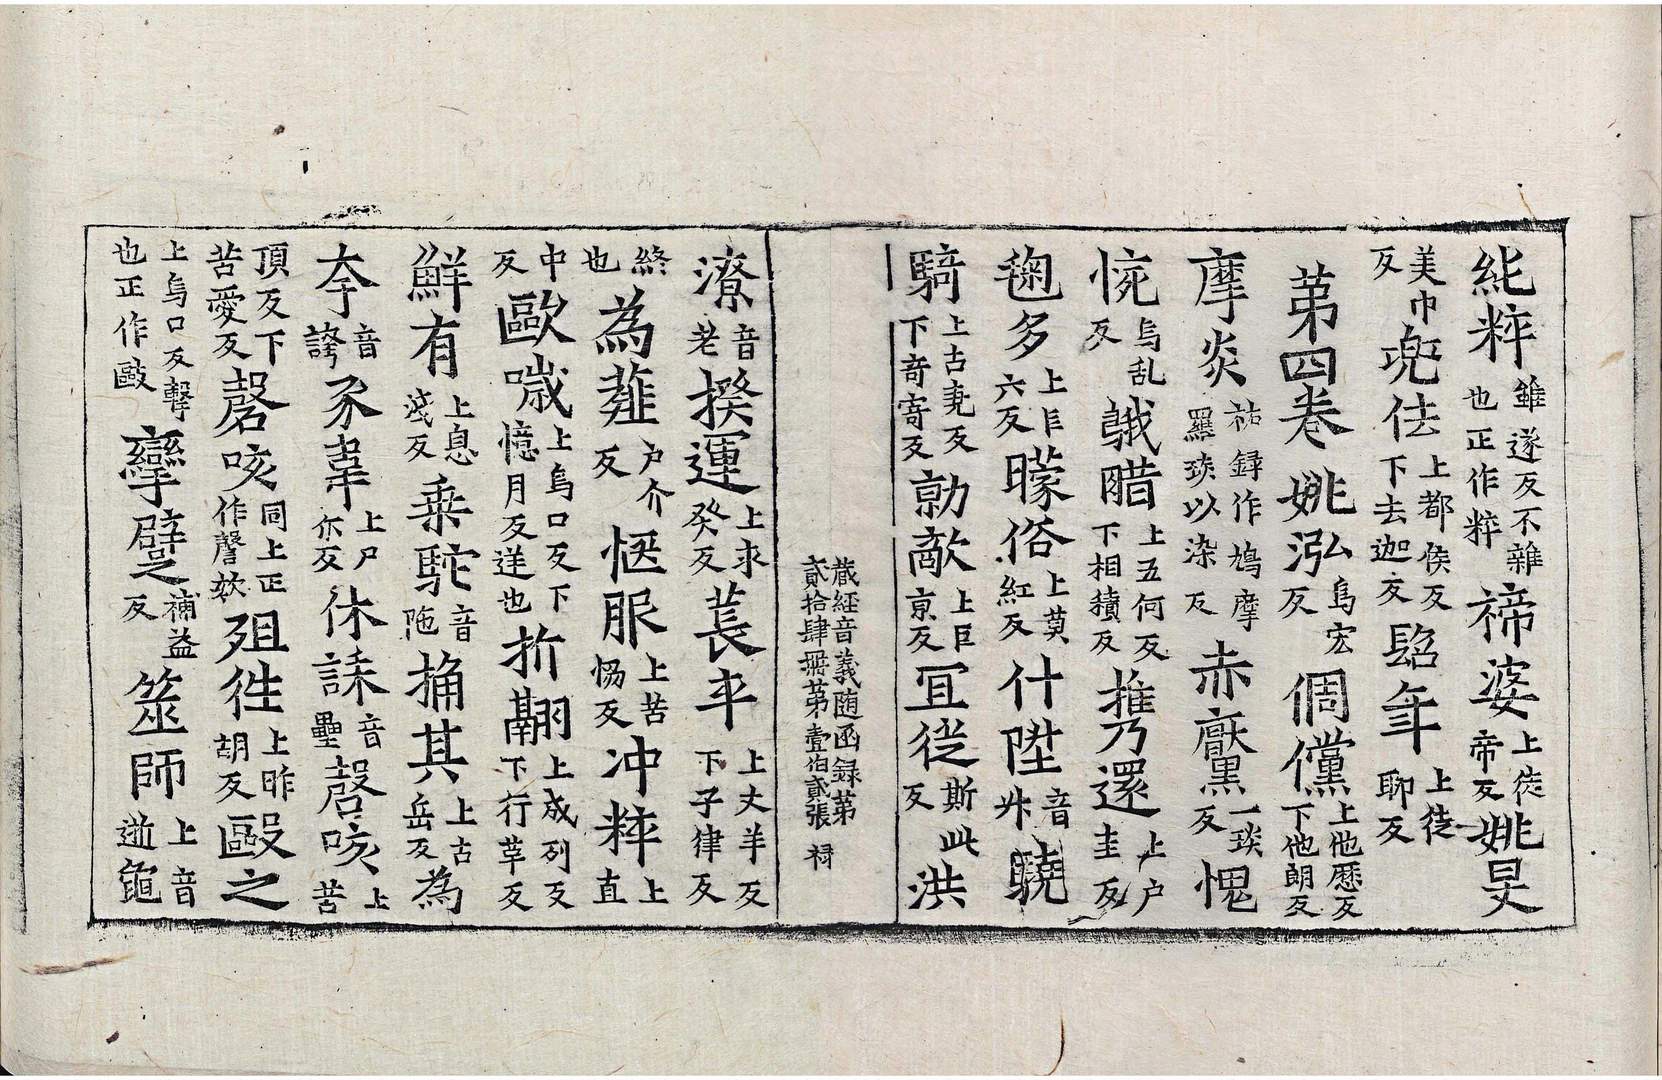 粃粹雖遂反不雜也正作粹禘婆上徒帝反姚旻
美巾反兜佉上都侯反下去迦反髫年上徒聊反
第四卷姚泓烏宏反倜儻上他歷反下他朗反
摩炎祐録作鳩摩羅琰以染反赤黶一琰反愧
惋烏乱反䳘腊上五何反下相積反携還上户圭反
毱多上巨六反曚俗上莫紅反什陞音升驍
騎上古尭反下竒寄反勍敵上巨京反冝徙斯此反洪
藏経音義随函録第貳拾肆冊第壹伯貳張 禂
潦音老揆運上求癸反萇卒上丈羊反下子律反
終也為薤户介反愜服上苦愶反冲粹上直
中反歐噦上烏口反下憶月反逆也折翮上成列反下行革反
鮮有上息淺反乗駝音陁捔其上古岳反為
夸音誇豕韋上尸尓反休誄音壘磬咳上苦
頂反下苦愛反磬咳同上正作謦欬殂徃上昨胡反毆之
上烏口反擊也正作毆孿躄補益反筮師上音逝龜